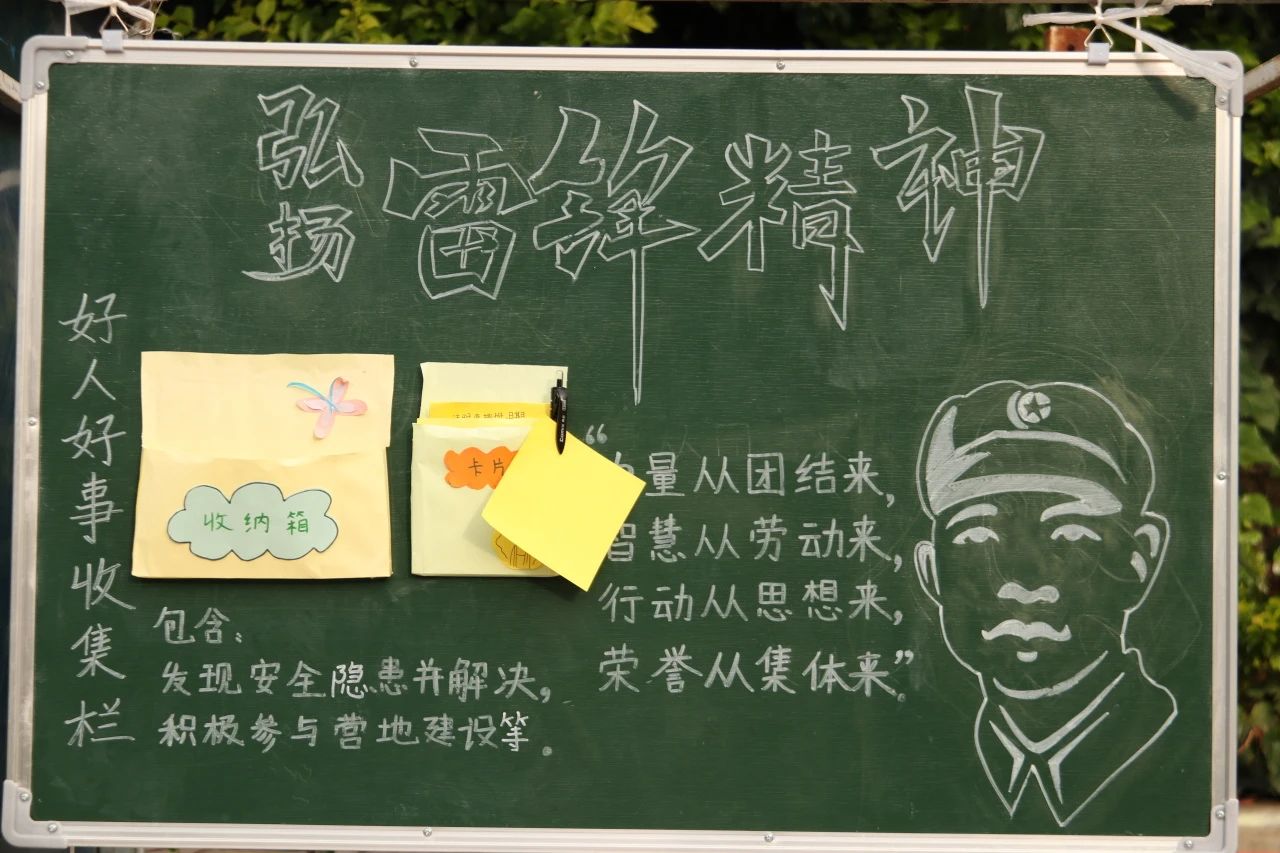 弘扬雷锋精神
好人好事收集栏
收纳箱
卡片
量从团结来，
智慧从劳动来，
行动从思想来，
荣誉从集体来”。
包含：
发现安全隐患并解决，
积极参与营地建设等。